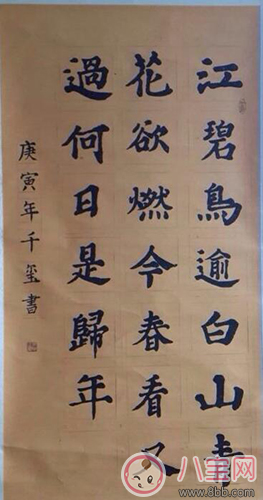 江碧鳥逾白山青
花欲燃今春看又
過何日是歸年
庚寅年千玺書
八宝网
www.8bb.com